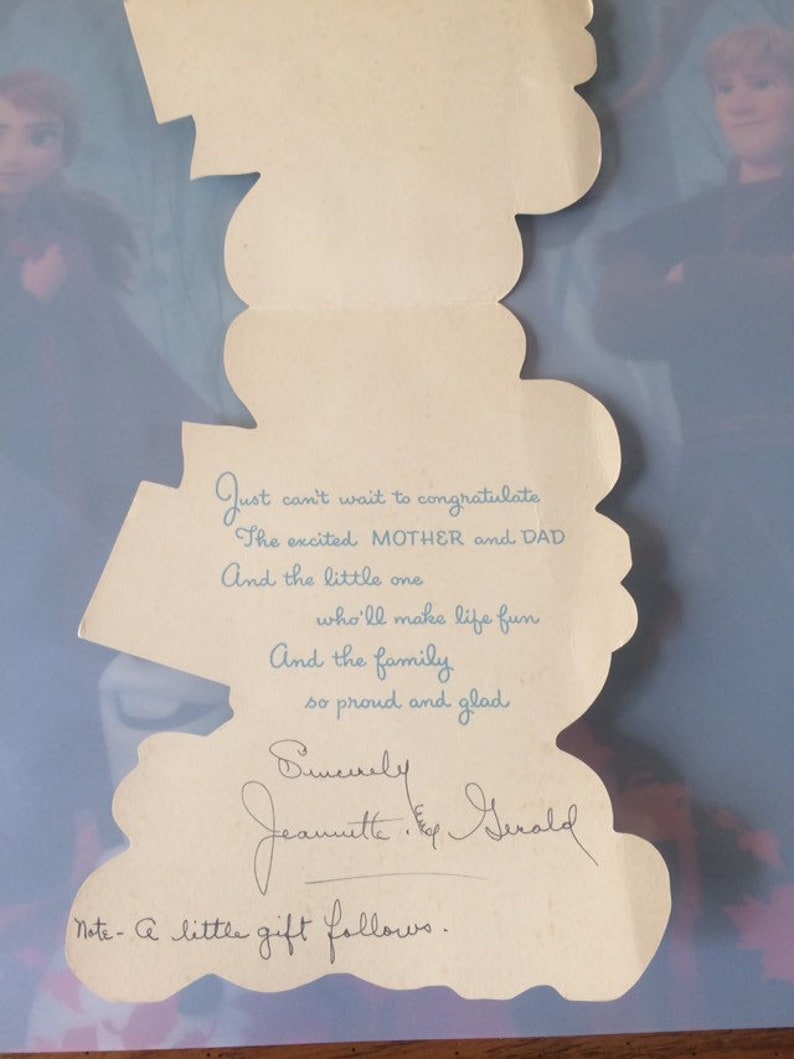 Just can't wait to congratulate
The excited MOTHER and DAD
And the little one
who'll make life fun
And the family
so proud and glad
Sincerely
Jeannette & Gerald
Note- A little gift follows.